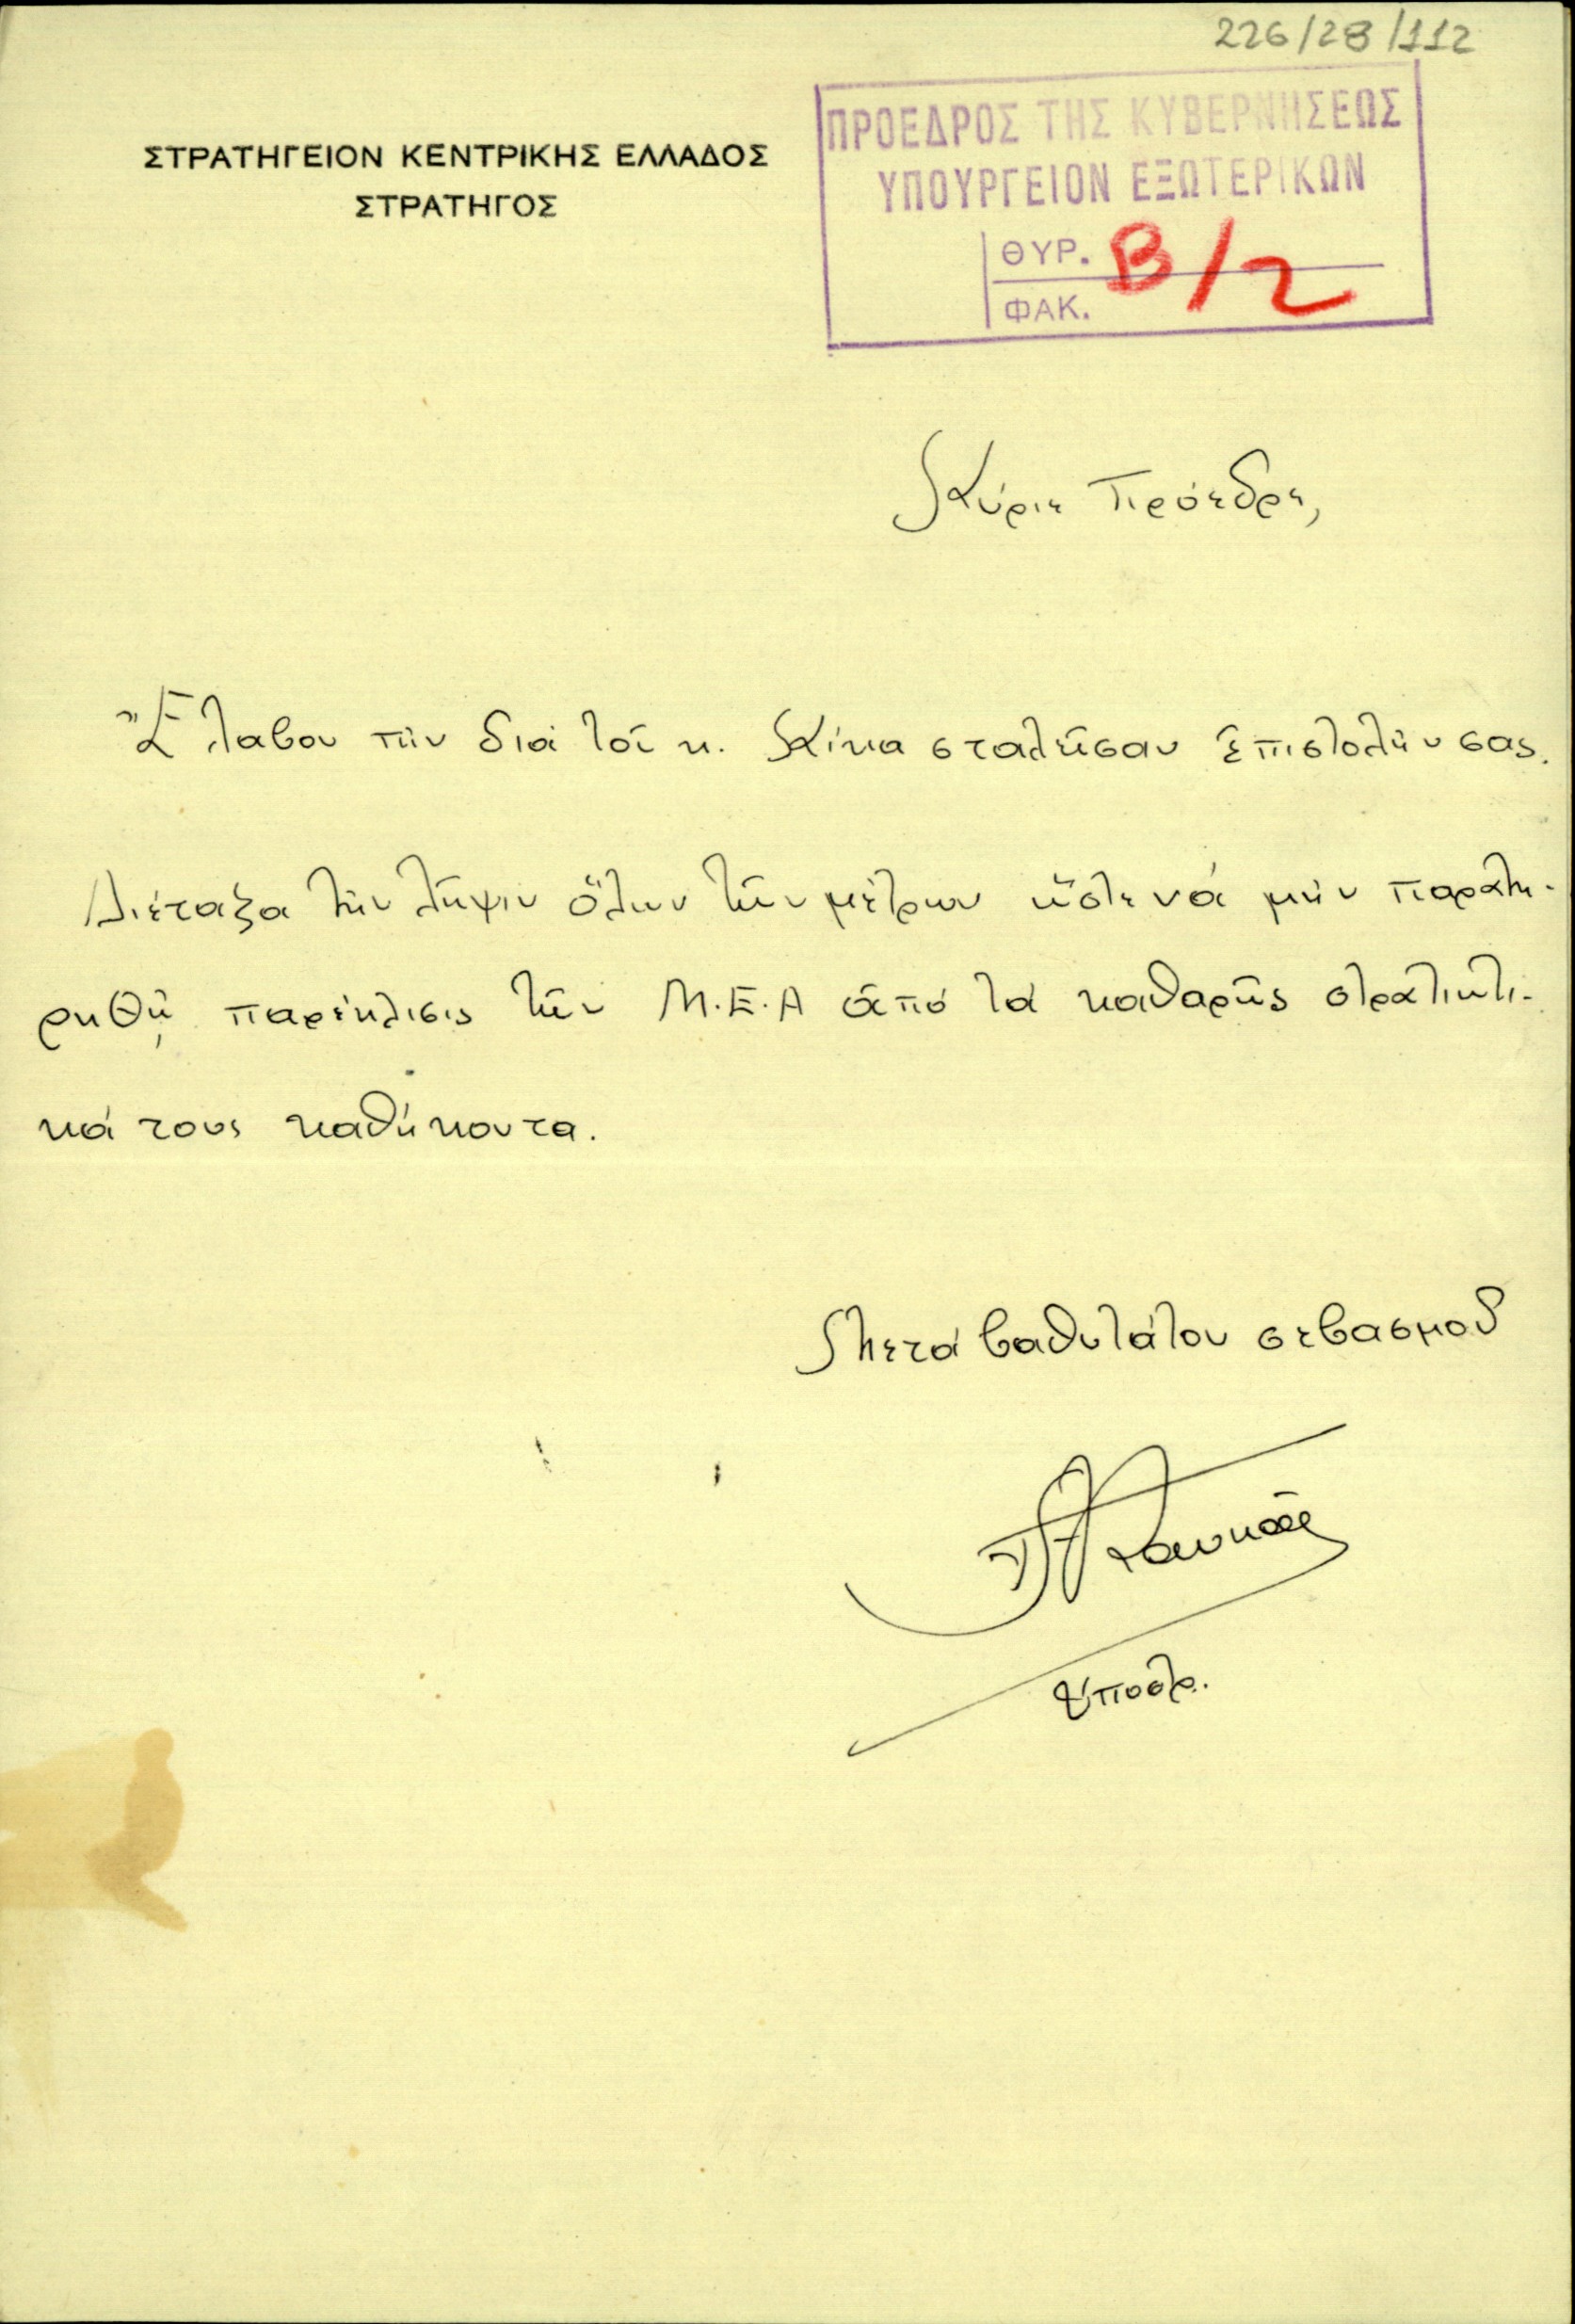 226/28/112
ΣΤΡΑΤΗΓΕΙΟΝ ΚΕΝΤΡΙΚΗΣ ΕΛΛΑΔΟΣ
ΣΤΡΑΤΗΓΟΣ
ΠΡΟΕΔΡΟΣ ΤΗΣ ΚΥΒΕΡΝΗΣΕΩΣ
ΥΠΟΥΡΓΕΙΟΝ ΕΞΩΤΕΡΙΚΩΝ
ΘΥΡ. Β/2
ΦΑΚ.
Κύριε Πρόεδρε,
Ἔλαβον τήν διά τοῦ κ. σταλεῖσαν ἐπιστολήν σας.
Διέταξα τήν λῆψιν ὅλων τῶν μέτρων ὥστε νά μήν παρατη-
ρηθῇ παρέκλισις τῶν Μ.Ε.Α ἀπό τά καθαρῶς στρατιωτι-
κά τους καθήκοντα.
Μετά βαθυτάτου σεβασμοῦ
ὑποστρ.